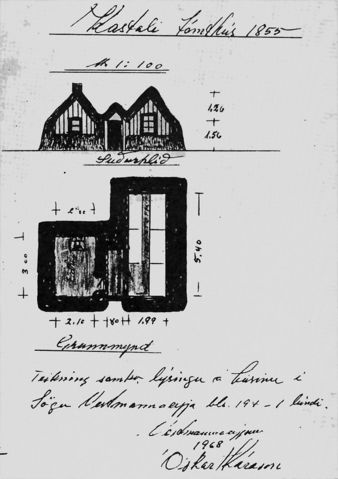 Kastali tómthús 1855
M 1:100
1.20
1.50
Suðurhlið
2.00
3.00
5.40
2.10 80 1.99
Grunnmynd
Teikning samkv. lýsingu á húsinu í
Sögu Vestmannaeyja bls. 194 - I bindi.
Vestmannaeyjum
1968
Óskar Kárason